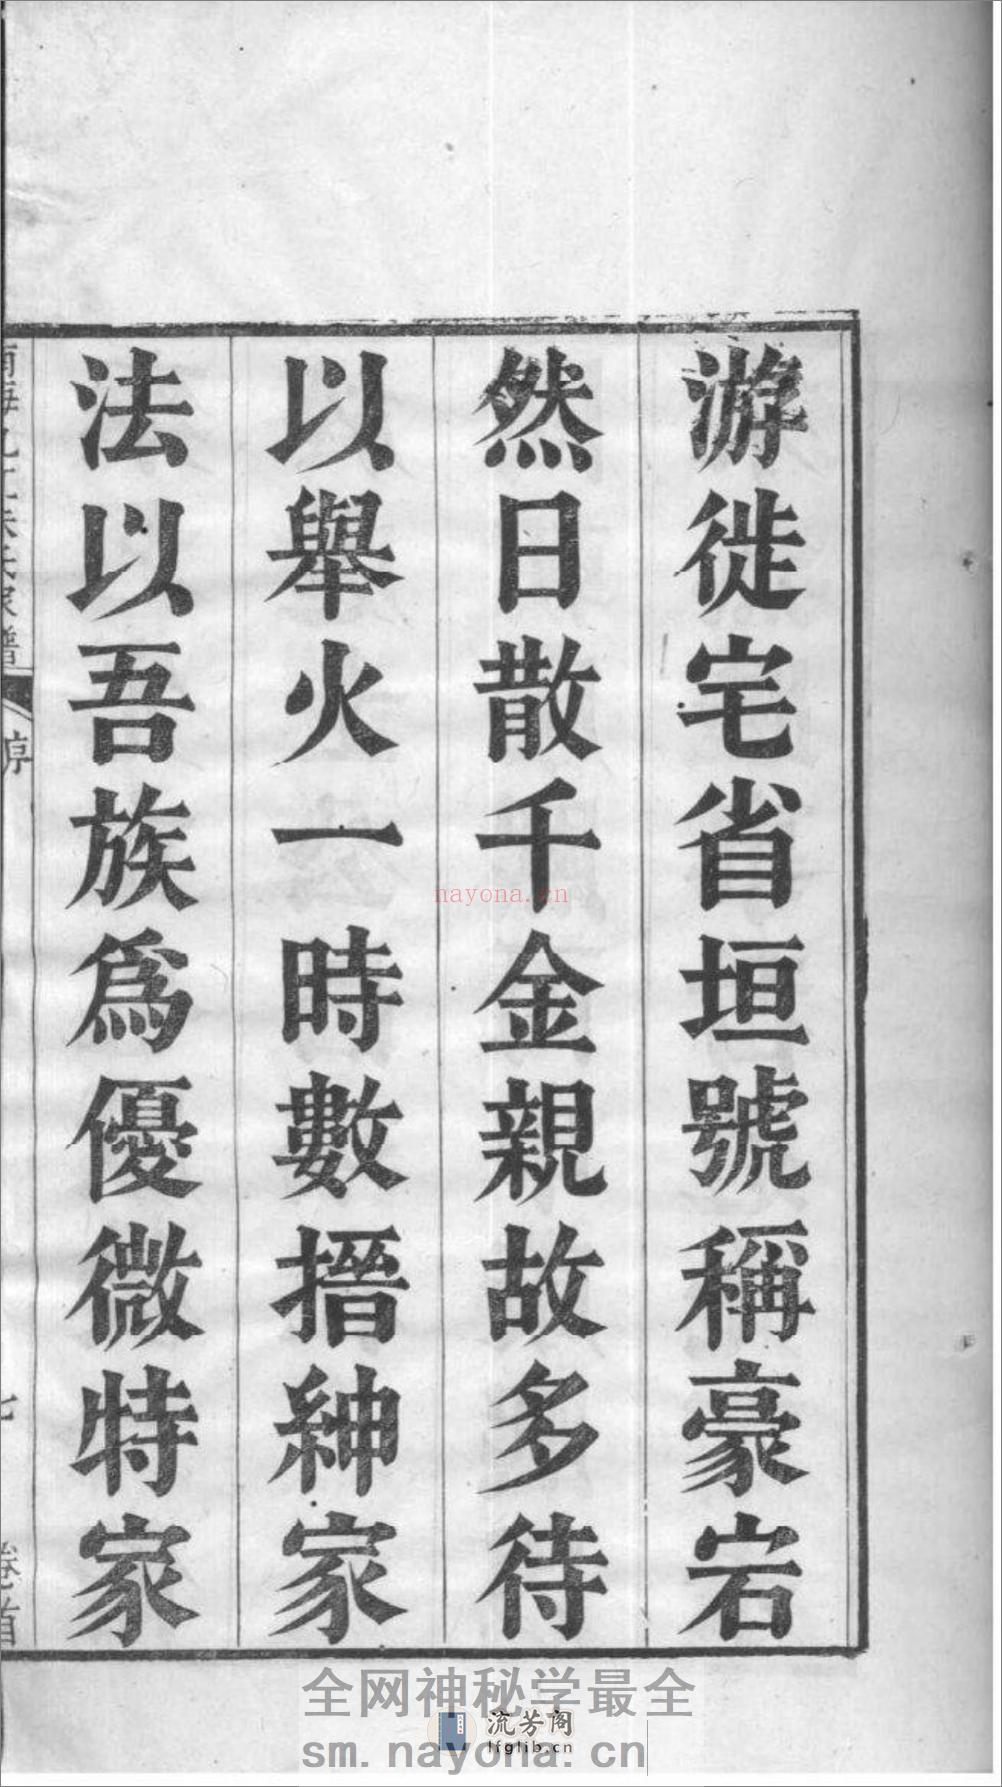 游徙宅省垣號稱豪宕
然日散千金親故多待
以舉火一時數搢紳家
法以吾族爲優微特家
序
卷首
nayona.cn
全网神秘学最全
流芳阁
lfglib.cn
sm.nayona.cn